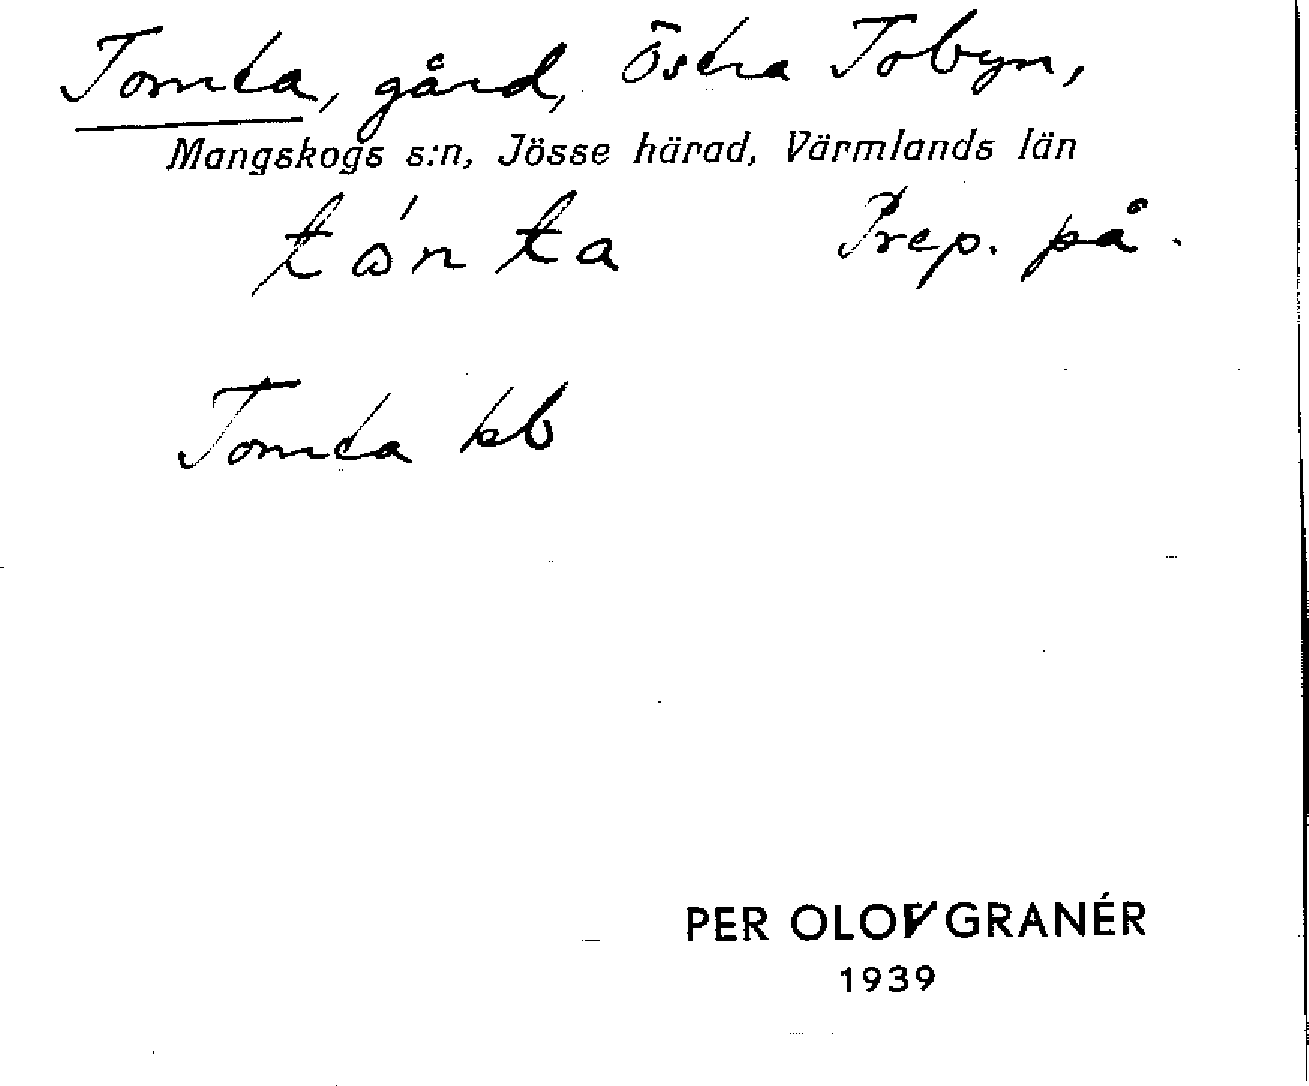 Tomta, gård, Östra Tobyn,
Mangskogs s:n, Jösse härad, Värmlands län
tónta Prep. på.
Tomta kb
PER OLOV GRANÉR
1939